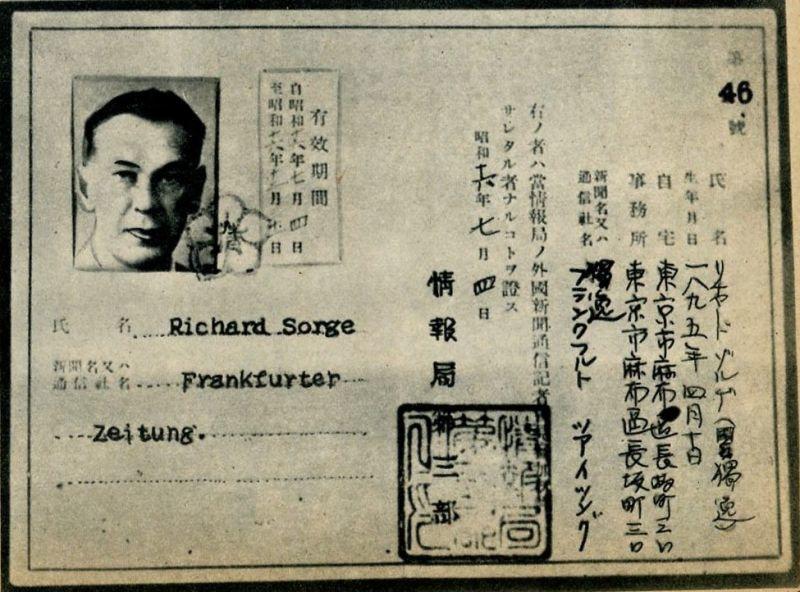 第46號
氏名 リチャード ゾルゲ（國獨逸）
生年月日 一八九五年四月十日
自宅 東京市麻布區長坂町三〇
事務所 東京市麻布區長坂町三〇
新聞名又ハ
通信社名
獨逸
フランクフルト ツアイツング
右ノ者ハ當情報局ノ外國新聞通信記者
サレタル者ナルコトヲ證ス
昭和十六年七月四日
情報局第三部
有效期間
自昭和十六年七月四日
至昭和十六年 月 日
氏名 Richard Sorge
新聞名又ハ
通信社名 Frankfurter
Zeitung.